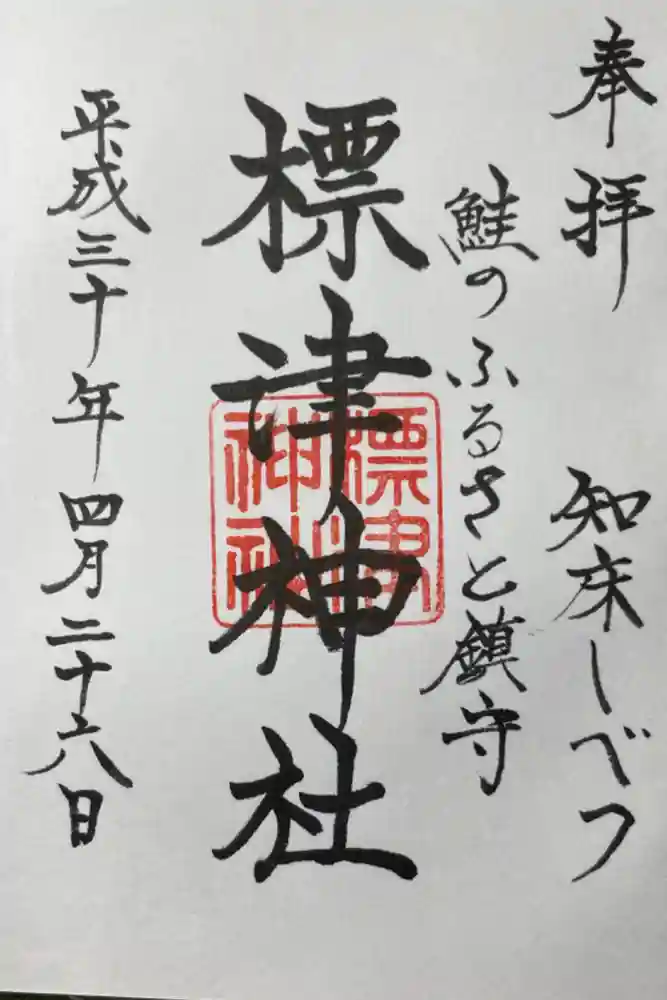 奉拝 知床しべつ
鮭のふるさと鎮守
標津神社
標津神社
平成三十年四月二十六日